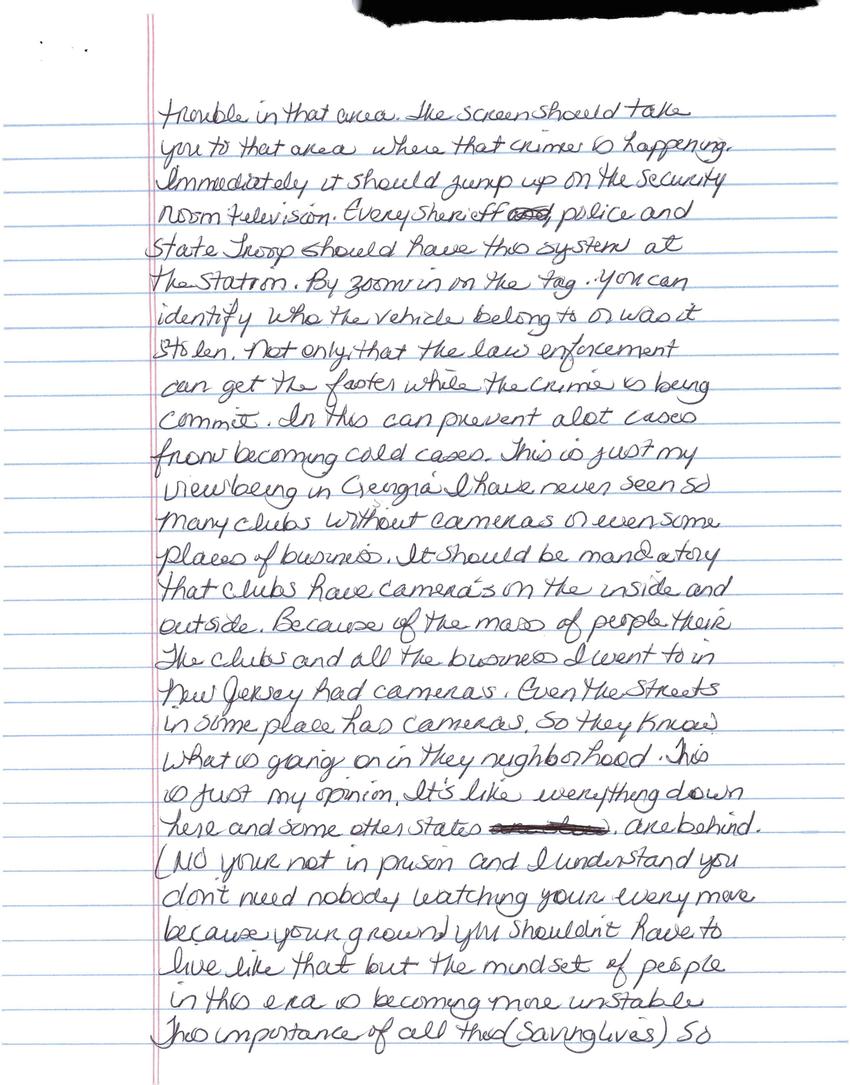 trouble in that area. The screen should take
you to that area where that crimes is happening.
Immediately it should jump up on the security
room television. Every sherieff police and
State Troop should have this system at
the station. By zoom in on the tag. You can
identify who the vehicle belong to or was it
stolen. Not only, that the law enforcement
can get the faster while the crime is being
commit. In this can prevent alot cases
from becoming cold cases. This is just my
view being in Georgia I have never seen so
many clubs without cameras or even some
places of business. It should be mandatory
that clubs have camera's on the inside and
outside. Because of the mass of people their
The clubs and all the business I went to in
New Jersey had cameras. Even the streets
in some place has cameras. So they know
what is going on in they neighborhood. This
is just my opinion. It's like everything down
here and some other states . are behind.
(NO your not in prison and I understand you
don't need nobody watching your every move
because your grown) you shouldn't have to
live like that but the mindset of people
in this era is becoming more unstable
This importance of all this (saving lives) So